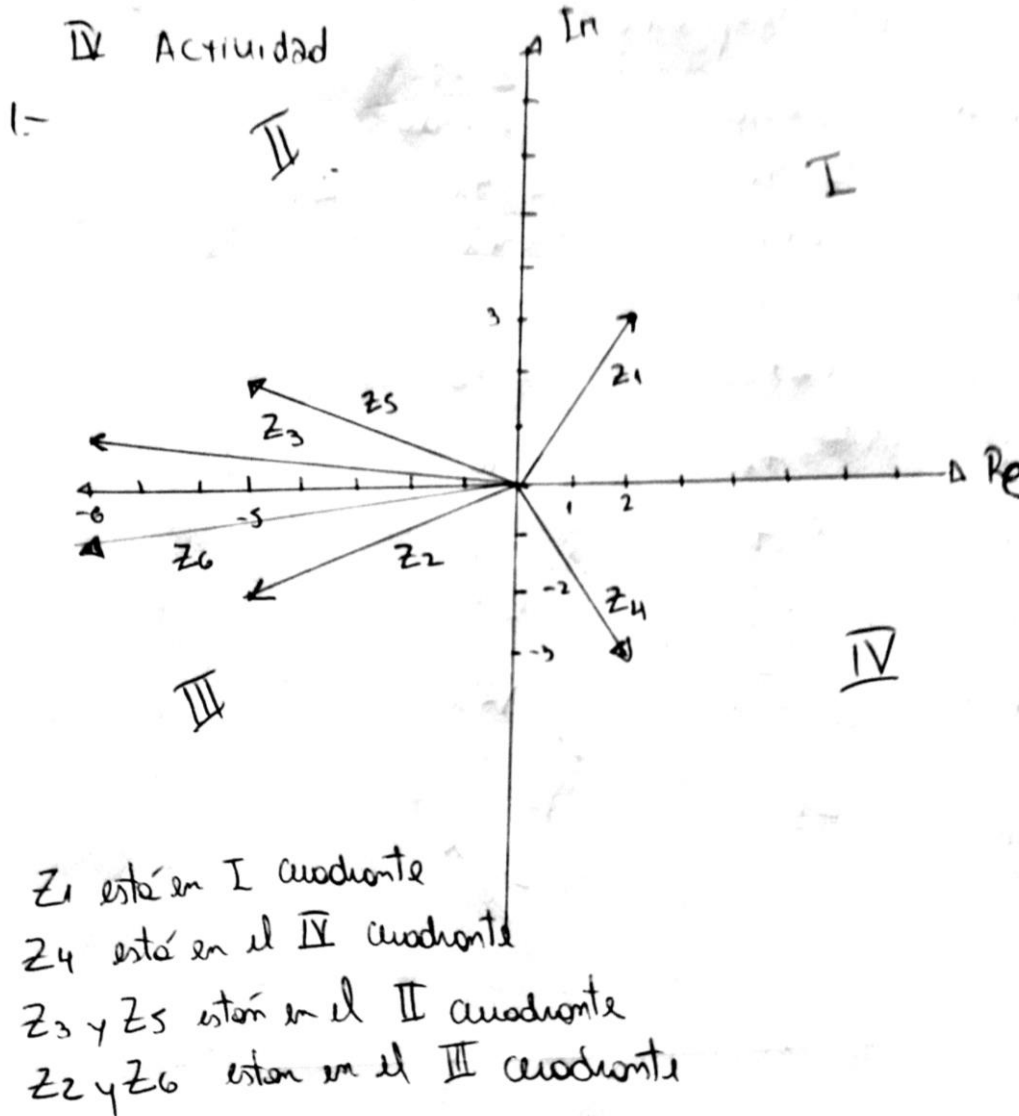 IV Actividad
Im
1.-
II
I
3
Z1
Z5
Z3
Re
-5
1
2
Z6
Z2
-2
Z4
-3
IV
III
Z1 está en I cuadrante
Z4 está en el IV cuadrante
Z3 y Z5 están en el II cuadrante
Z2 y Z6 estan en el III cuadrante